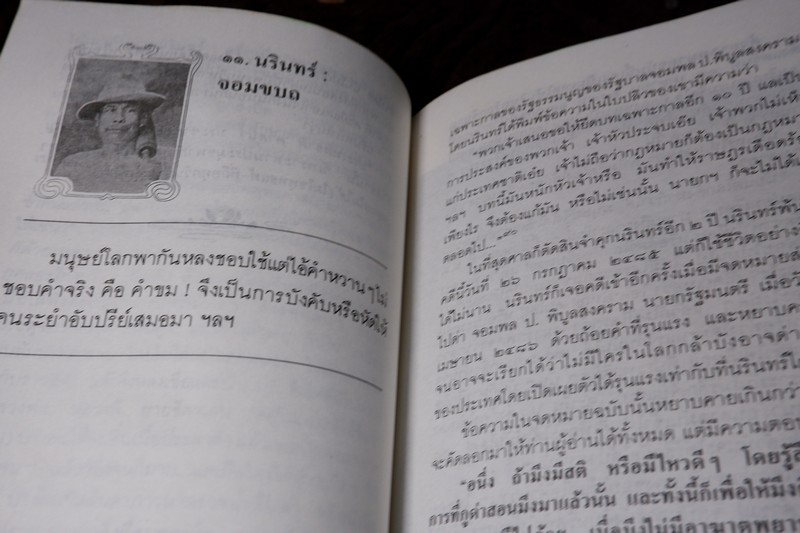 ๑๑. นรินทร์ :
จอมขบถ
มนุษย์โลกพากันหลงชอบใช้แต่ไอ้คำหวานๆ ไม่
ชอบคำจริง คือ คำขม ! จึงเป็นการบังคับหรือหัดให้
คนระยำอัปรีย์เสมอมา ฯลฯ
เฉพาะกาลของรัฐธรรมนูญของรัฐบาลจอมพล ป. พิบูลสงคราม
โดยนรินทร์ได้พิมพ์ข้อความในใบปลิวของเขามีความว่า
"พวกเจ้าเสนอขอให้ยืดบทเฉพาะกาลอีก ๑๐ ปี และเป็น
การประสงค์ของพวกเจ้า เจ้าหัวประจบเอ๋ย เจ้าพวกไม่เห็
แก่ประเทศชาติเอ๋ย เจ้าไม่ถือว่ากฎหมายก็ต้องเป็นกฎหมา
ฯลฯ บทนี้มันหนักหัวเจ้าหรือ มันทำให้ราษฎรเดือดร้อ
เพียงไร จึงต้องแก้มัน หรือไม่เช่นนั้น นายกฯ ก็จะไม่ได้เ
ตลอดไป..."
ในที่สุดศาลก็ตัดสินจำคุกนรินทร์อีก ๒ ปี นรินทร์พ้น
คดีนี้วันที่ ๒๖ กรกฎาคม ๒๔๘๕ แต่ก็ใช้ชีวิตอย่าง
ได้ไม่นาน นรินทร์ก็เจอคดีเข้าอีกครั้งเมื่อมีจดหมายส่
ไปด่า จอมพล ป. พิบูลสงคราม นายกรัฐมนตรี เมื่อวั
เมษายน ๒๔๘๖ ด้วยถ้อยคำที่รุนแรง และหยาบค
จนอาจจะเรียกได้ว่าไม่มีใครในโลกกล้าบังอาจด่า
ของประเทศโดยเปิดเผยตัวได้รุนแรงเท่ากับที่นรินทร์ไ
ข้อความในจดหมายฉบับนั้นหยาบคายเกินกว่
จะคัดลอกมาให้ท่านผู้อ่านได้ทั้งหมด แต่มีความตอน
"อนึ่ง ถ้ามึงมีสติ หรือมีไหวดีๆ โดยรู้สึ
การที่กูด่าสอนมึงมาแล้วนั้น และทั้งนี้ก็เพื่อให้มึง
เมื่อมึงไม่มีอาฆาตพยา